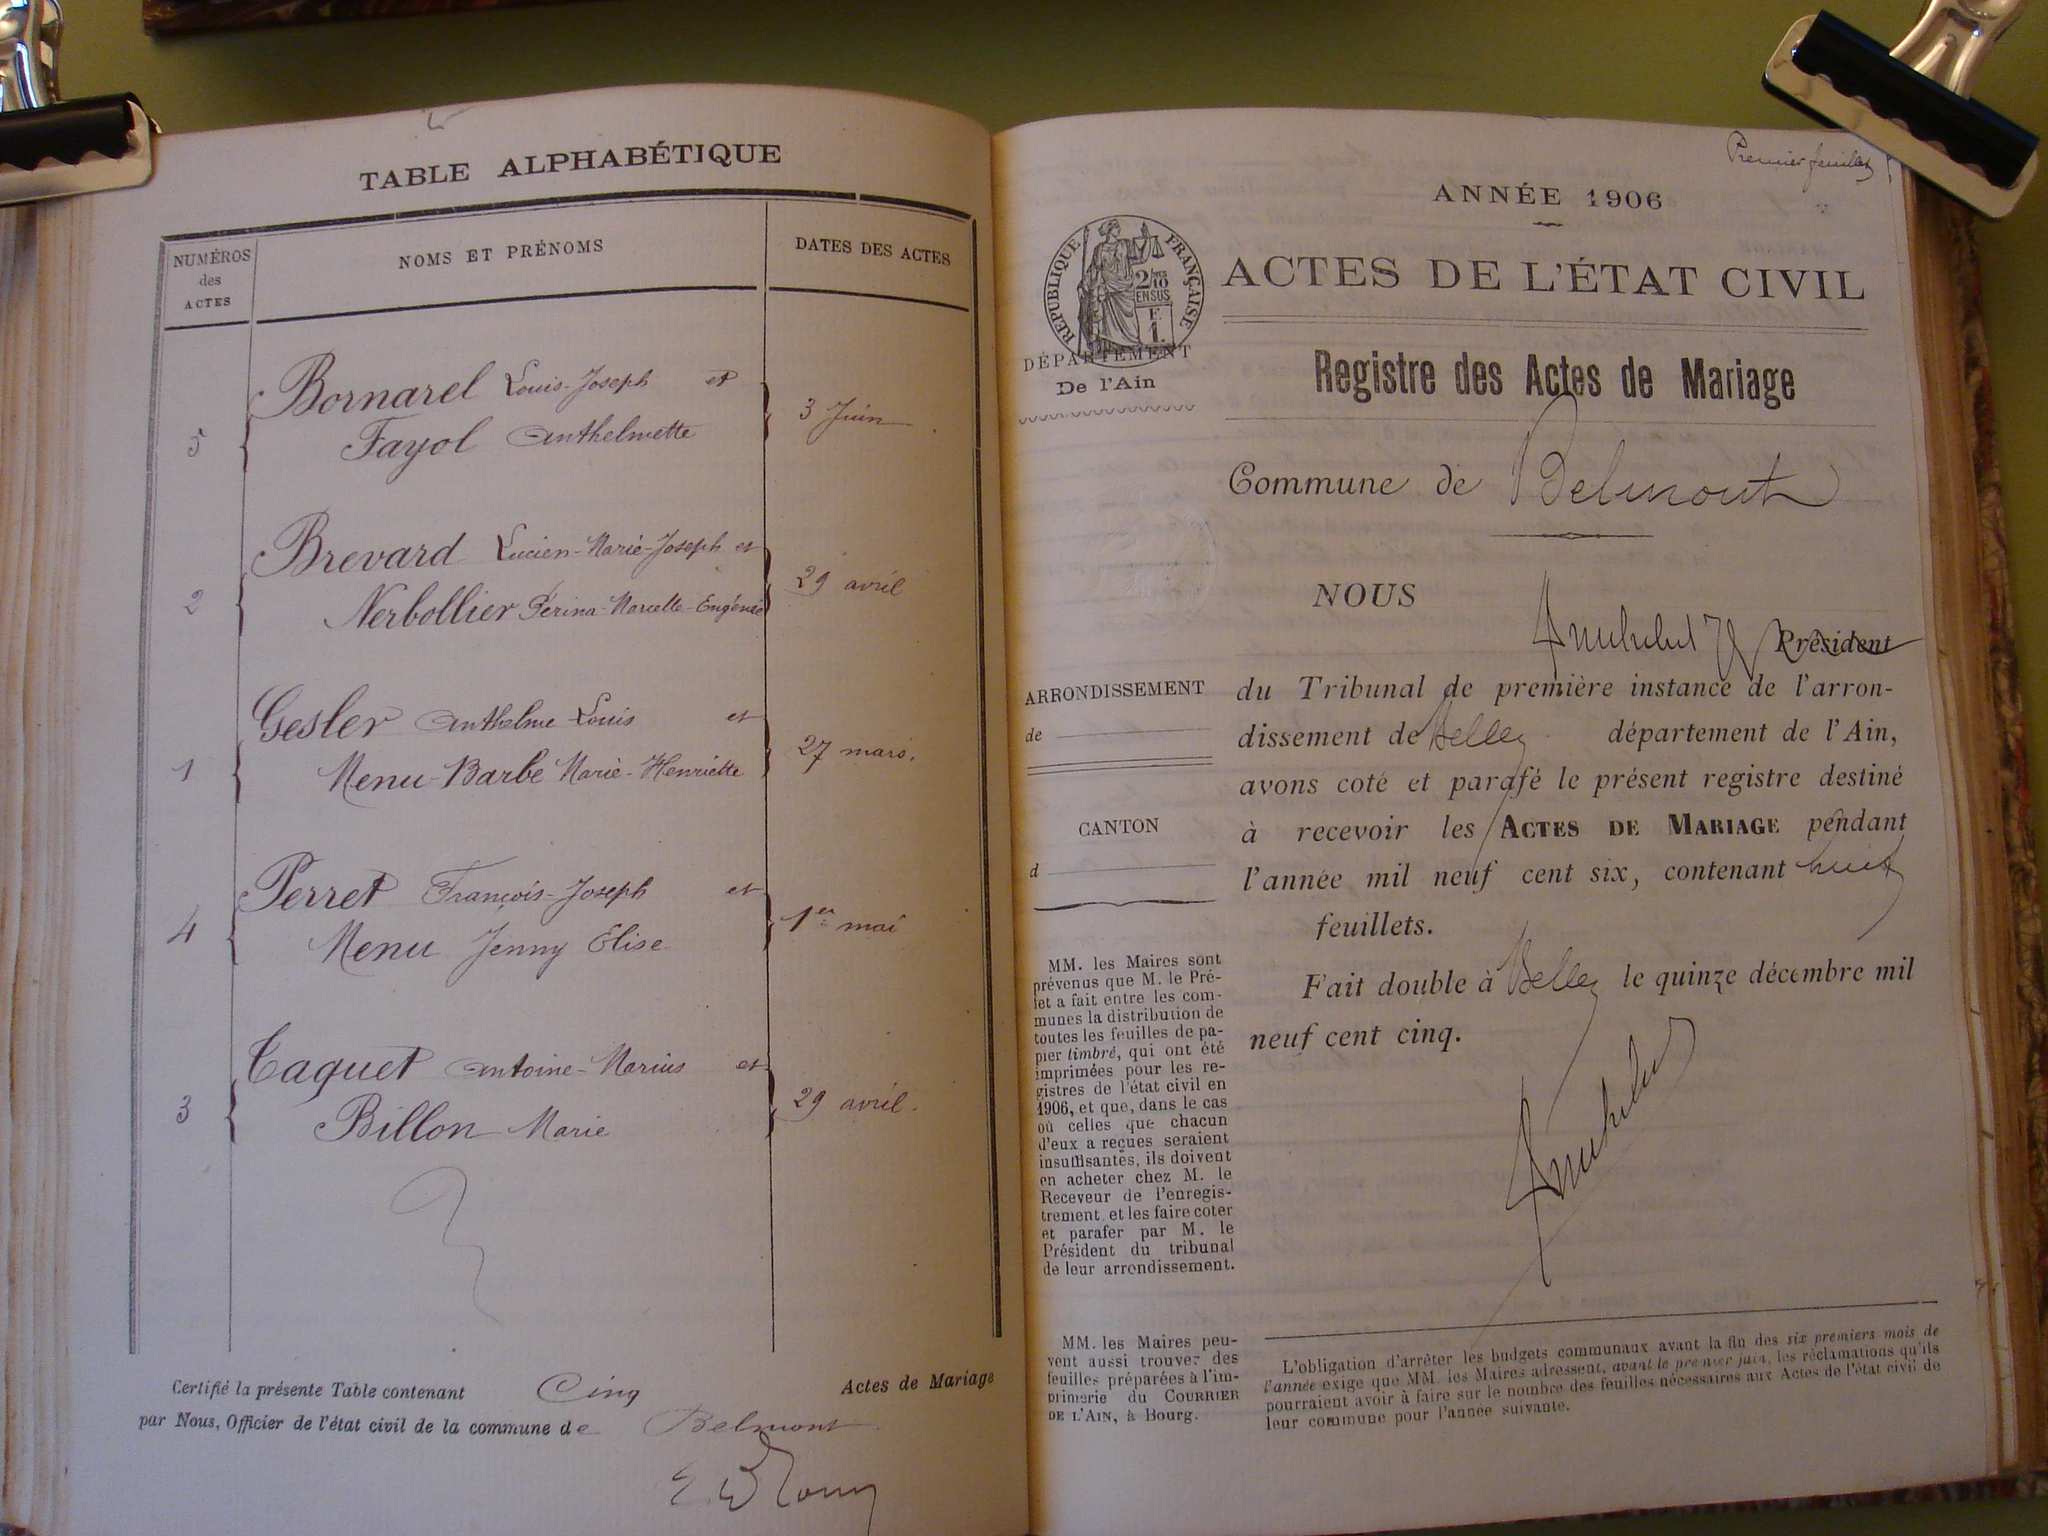 TABLE ALPHABÉTIQUE
NUMÉROS
des
ACTES
NOMS ET PRÉNOMS
DATES DES ACTES
5
Bornarel Louis-Joseph et
Fayol Anthelmette
3 Juin
2
Brevard Lucien-Marie-Joseph et
Nerbollier Périna-Marcelle-Eugénie
29 avril
1
Gesler Anthelme Louis et
Menu-Barbe Marie-Henriette
27 mars.
4
Perret François-Joseph et
Menu Jenny Elise
1er mai
3
Taquet Antoine-Marius et
Billon Marie
29 avril.
Certifié la présente Table contenant Cinq Actes de Mariage
par Nous, Officier de l'état civil de la commune de Belmont
Premier feuillet
ANNÉE 1906
RÉPUBLIQUE FRANÇAISE
2/10
EN SUS
F.
1.
ACTES DE L'ÉTAT CIVIL
DÉPARTEMENT
De l'Ain
Registre des Actes de Mariage
Commune de Belmont
NOUS
Président
ARRONDISSEMENT
de
CANTON
d
du Tribunal de première instance de l'arron-
dissement de Belley département de l'Ain,
avons coté et parafé le présent registre destiné
à recevoir les ACTES DE MARIAGE pendant
l'année mil neuf cent six, contenant huit
feuillets.
Fait double à Belley le quinze décembre mil
neuf cent cinq.
MM. les Maires sont
prévenus que M. le Pré-
fet a fait entre les com-
munes la distribution de
toutes les feuilles de pa-
pier timbré, qui ont été
imprimées pour les re-
gistres de l'état civil en
1906, et que, dans le cas
où celles que chacun
d'eux a reçues seraient
insuffisantes, ils doivent
en acheter chez M. le
Receveur de l'enregis-
trement et les faire coter
et parafer par M. le
Président du tribunal
de leur arrondissement.
MM. les Maires peu-
vent aussi trouver des
feuilles préparées à l'im-
primerie du COURRIER
DE L'AIN, à Bourg.
L'obligation d'arrêter les budgets communaux avant la fin des six premiers mois de
l'année exige que MM. les Maires adressent, avant le premier juin, les réclamations qu'ils
pourraient avoir à faire sur le nombre des feuilles nécessaires aux Actes de l'état civil de
leur commune pour l'année suivante.